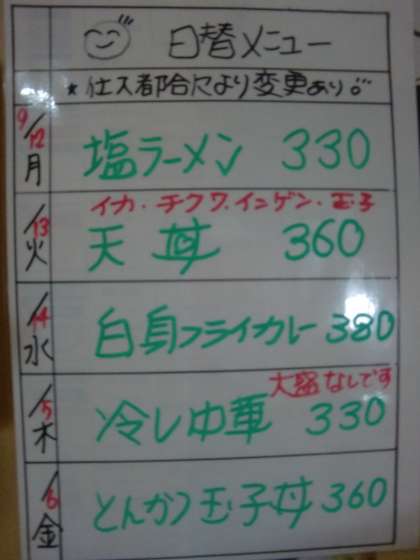 日替メニュー
*仕入都合により変更あり。
9/12 月 塩ラーメン 330
イカ・チクワ・インゲン・玉子
/13 火 天丼 360
/14 水 白身フライカレー 380
大盛なしです
/15 木 冷し中華 330
/16 金 とんかつ玉子丼 360